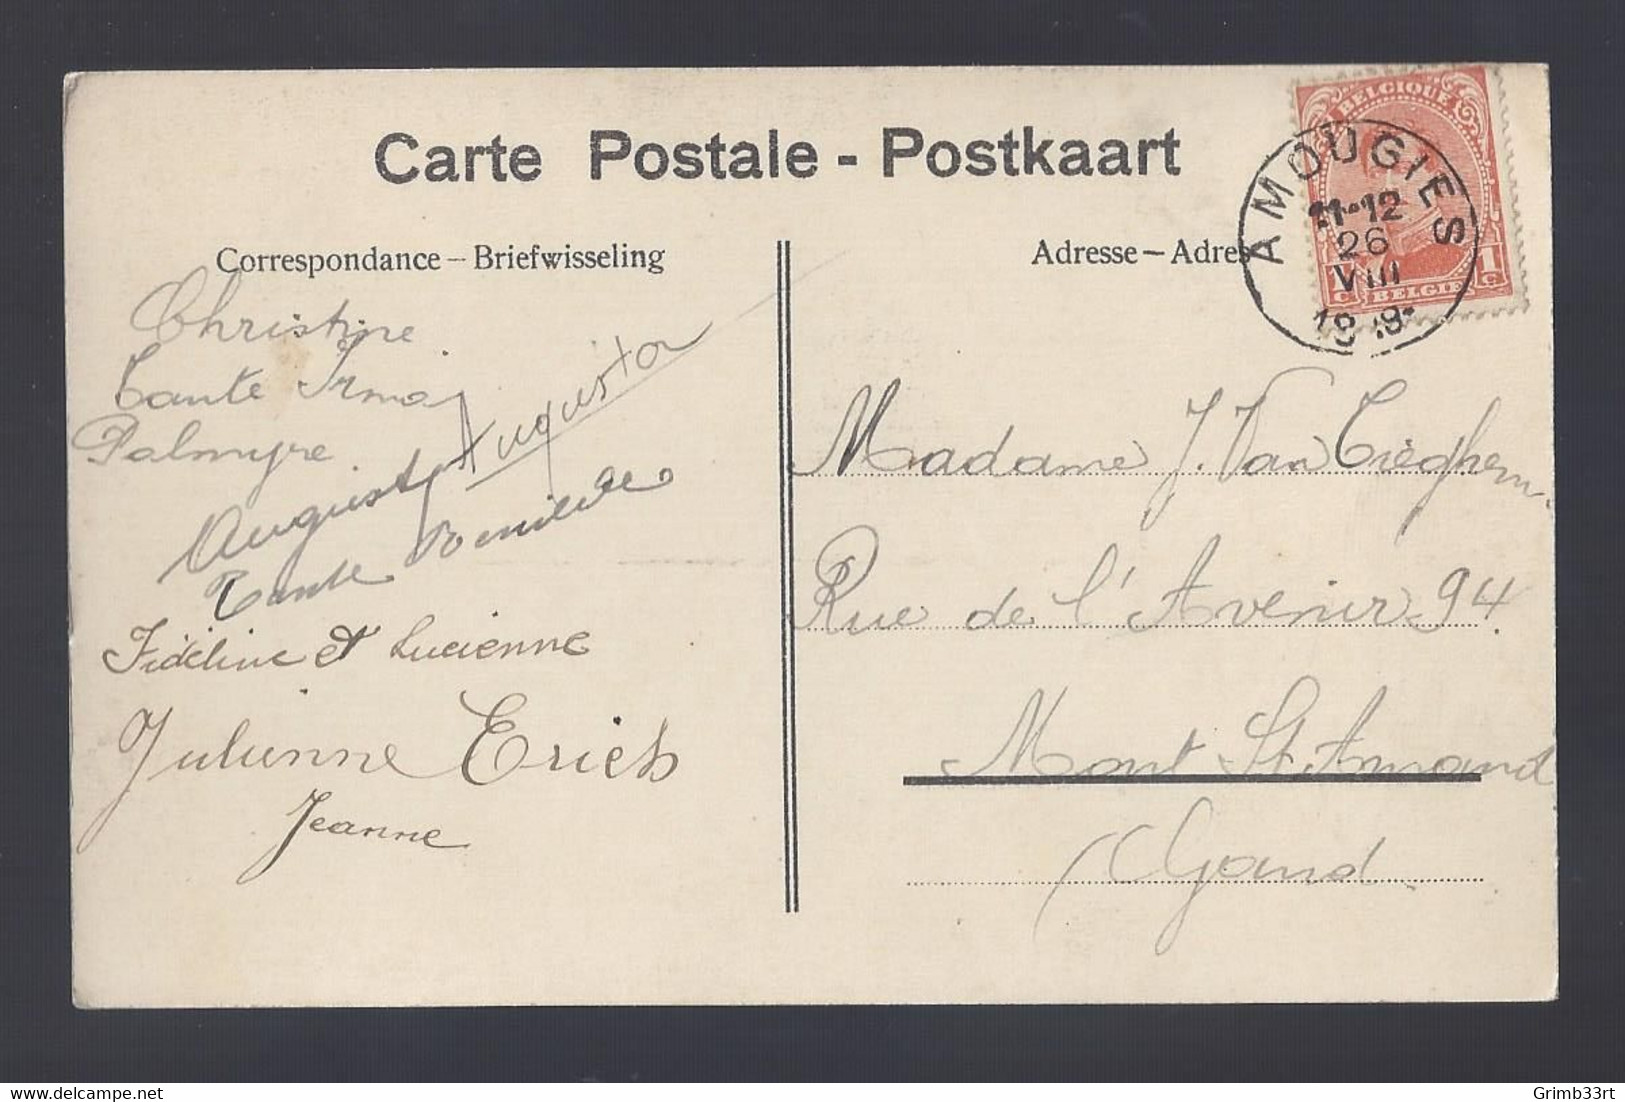 Carte Postale - Postkaart
Correspondance – Briefwisseling
Christine
Tante Irma
Palmyre
Augusta
August
Tante
Fidéline et Lucienne
Julienne Erich
Jeanne
Adresse – Adres
BELGIQUE
1c BELGIE 1c
AMOUGIES
11-12
26
VIII
Madame J. Van Tieghem
Rue de l'Avenir 94
Mont St. Amand
(Gand
© Grimb33rt